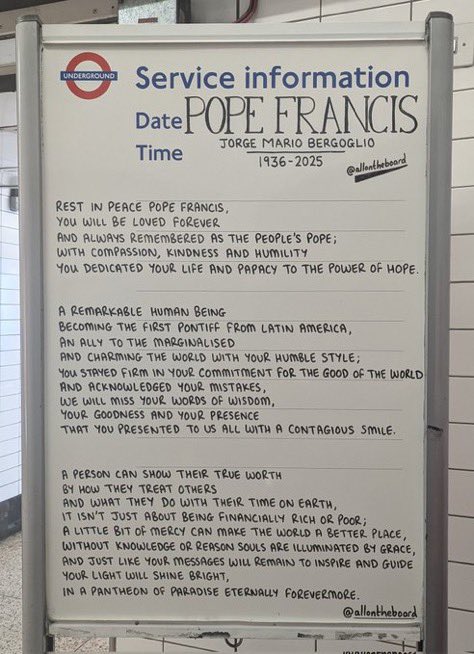 UNDERGROUND
Service information
Date POPE FRANCIS
JORGE MARIO BERGOGLIO
Time
1936-2025
@allontheboard
REST IN PEACE POPE FRANCIS,
YOU WILL BE LOVED FOREVER
AND ALWAYS REMEMBERED AS THE PEOPLE'S POPE;
WITH COMPASSION, KINDNESS AND HUMILITY
YOU DEDICATED YOUR LIFE AND PAPACY TO THE POWER OF HOPE.
A REMARKABLE HUMAN BEING
BECOMING THE FIRST PONTIFF FROM LATIN AMERICA,
AN ALLY TO THE MARGINALISED
AND CHARMING THE WORLD WITH YOUR HUMBLE STYLE;
YOU STAYED FIRM IN YOUR COMMITMENT FOR THE GOOD OF THE WORLD
AND ACKNOWLEDGED YOUR MISTAKES,
WE WILL MISS YOUR WORDS OF WISDOM,
YOUR GOODNESS AND YOUR PRESENCE
THAT YOU PRESENTED TO US ALL WITH A CONTAGIOUS SMILE.
A PERSON CAN SHOW THEIR TRUE WORTH
BY HOW THEY TREAT OTHERS
AND WHAT THEY DO WITH THEIR TIME ON EARTH,
IT ISN'T JUST ABOUT BEING FINANCIALLY RICH OR POOR;
A LITTLE BIT OF MERCY CAN MAKE THE WORLD A BETTER PLACE,
WITHOUT KNOWLEDGE OR REASON SOULS ARE ILLUMINATED BY GRACE,
AND JUST LIKE YOUR MESSAGES WILL REMAIN TO INSPIRE AND GUIDE
YOUR LIGHT WILL SHINE BRIGHT,
IN A PANTHEON OF PARADISE ETERNALLY FOREVERMORE.
@allontheboard